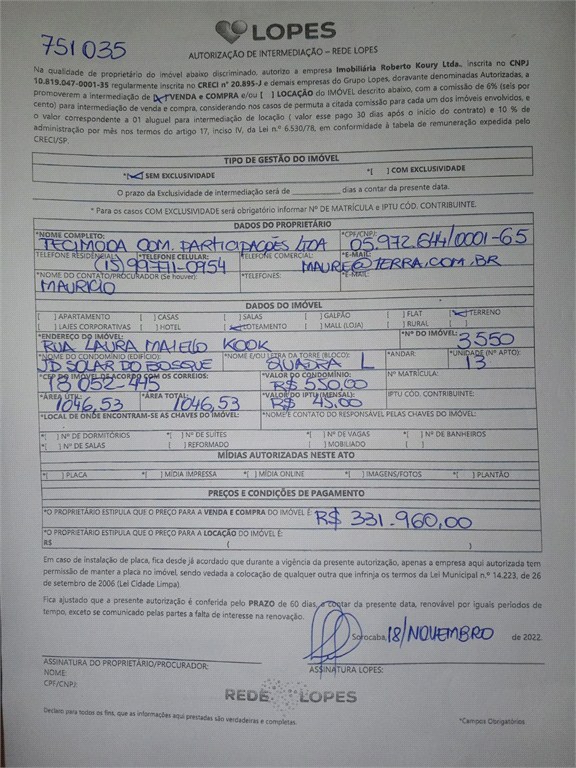 751035
LOPES
AUTORIZAÇÃO DE INTERMEDIAÇÃO – REDE LOPES
Na qualidade de proprietário do imóvel abaixo discriminado, autorizo a empresa Imobiliária Roberto Koury Ltda., inscrita no CNPJ
10.819.047-0001-35 regularmente inscrita no CRECI nº 20.895-J e demais empresas do Grupo Lopes, doravante denominadas Autorizadas, a
promoverem a intermediação de [X] VENDA e COMPRA e/ou [ ] LOCAÇÃO do IMÓVEL descrito abaixo, com a comissão de 6% (seis por
cento) para intermediação de venda e compra, considerando nos casos de permuta a citada comissão para cada um dos imóveis envolvidos, e
o valor correspondente a 01 aluguel para intermediação de locação ( valor esse pago 30 dias após o início do contrato) e 10 % de
administração por mês nos termos do artigo 17, inciso IV, da Lei n.º 6.530/78, em conformidade à tabela de remuneração expedida pelo
CRECI/SP.
TIPO DE GESTÃO DO IMÓVEL
*[X] SEM EXCLUSIVIDADE *[ ] COM EXCLUSIVIDADE
O prazo da Exclusividade de intermediação será de ______ dias a contar da presente data.
* Para os casos COM EXCLUSIVIDADE será obrigatório informar Nº DE MATRÍCULA e IPTU CÓD. CONTRIBUINTE.
DADOS DO PROPRIETÁRIO
*NOME COMPLETO: *CPF/CNPJ:
TECIMODA COM. PARTICIPAÇÕES LTDA 05.972.644/0001-65
TELEFONE RESIDENCIAL: *TELEFONE CELULAR: TELEFONE COMERCIAL: *E-MAIL:
(15) 99711-0954 MAURE@TERRA.COM.BR
*NOME DO CONTATO/PROCURADOR (Se houver): *TELEFONES: *E-MAIL:
MAURICIO
DADOS DO IMÓVEL
[ ] APARTAMENTO [ ] CASAS [ ] SALAS [ ] GALPÃO [ ] FLAT [X] TERRENO
[ ] LAJES CORPORATIVAS [ ] HOTEL [X] LOTEAMENTO [ ] MALL (LOJA) [ ] RURAL [ ]
*ENDEREÇO DO IMÓVEL: *Nº DO IMÓVEL:
RUA LAURA MAIELO KOOK 3550
*NOME DO CONDOMÍNIO (EDIFÍCIO): NOME E/OU LETRA DA TORRE (BLOCO): *ANDAR: *UNIDADE (Nº APTO):
JD SOLAR DO BOSQUE QUADRA L 13
*CEP DO IMÓVEL DE ACORDO COM OS CORREIOS: *VALOR DO CONDOMÍNIO: Nº MATRÍCULA:
18052-445 R$ 550,00
*ÁREA ÚTIL: *ÁREA TOTAL: *VALOR DO IPTU (MENSAL): IPTU CÓD. CONTRIBUINTE:
1046,53 1046,53 R$ 45,00
*LOCAL DE ONDE ENCONTRAM-SE AS CHAVES DO IMÓVEL: *NOME/E CONTATO DO RESPONSÁVEL PELAS CHAVES DO IMÓVEL:
*[ ] Nº DE DORMITÓRIOS *[ ] Nº DE SUÍTES *[ ] Nº DE VAGAS *[ ] Nº DE BANHEIROS
*[ ] Nº DE SALAS [ ] REFORMADO [ ] MOBILIADO [ ]
MÍDIAS AUTORIZADAS NESTE ATO
*[ ] PLACA *[ ] MÍDIA IMPRESSA *[ ] MÍDIA ONLINE *[ ] IMAGENS/FOTOS *[ ] PLANTÃO
PREÇOS E CONDIÇÕES DE PAGAMENTO
*O PROPRIETÁRIO ESTIPULA QUE O PREÇO PARA A VENDA E COMPRA DO IMÓVEL É: R$ 331.960,00
*O PROPRIETÁRIO ESTIPULA QUE O PREÇO PARA A LOCAÇÃO DO IMÓVEL É:
R$ ( )
Em caso de instalação de placa, fica desde já acordado que durante a vigência da presente autorização, apenas a empresa aqui autorizada tem
permissão de manter a placa no imóvel, sendo vedada a colocação de qualquer outra que infrinja os termos da Lei Municipal n.º 14.223, de 26
de setembro de 2006 (Lei Cidade Limpa).
Fica ajustado que a presente autorização é conferida pelo PRAZO de 60 dias, a contar da presente data, renovável por iguais períodos de
tempo, exceto se comunicado pelas partes a falta de interesse na renovação.
Sorocaba, 18/NOVEMBRO de 2022.
ASSINATURA DO PROPRIETÁRIO/PROCURADOR: ASSINATURA LOPES:
NOME:
CPF/CNPJ:
REDE LOPES
Declaro para todos os fins, que as informações aqui prestadas são verdadeiras e completas. *Campos Obrigatórios